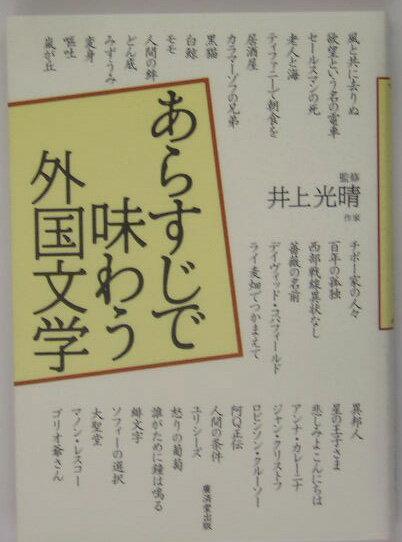 風と共に去りぬ
欲望という名の電車
セールスマンの死
老人と海
ティファニーで朝食を
居酒屋
カラマーゾフの兄弟
黒猫
白鯨
モモ
人間の絆
どん底
みずうみ
変身
嘔吐
嵐が丘
あらすじで
味わう
外国文学
監修
井上光晴
作家
チボー家の人々
百年の孤独
西部戦線異状なし
薔薇の名前
デイヴィッド・コパフィールド
ライ麦畑でつかまえて
異邦人
星の王子さま
悲しみよこんにちは
アンナ・カレーニナ
ジャン・クリストフ
ロビンソン・クルーソー
阿Q正伝
人間の条件
ユリシーズ
怒りの葡萄
誰がために鐘は鳴る
緋文字
ソフィーの選択
大聖堂
マノン・レスコー
ゴリオ爺さん
廣済堂出版